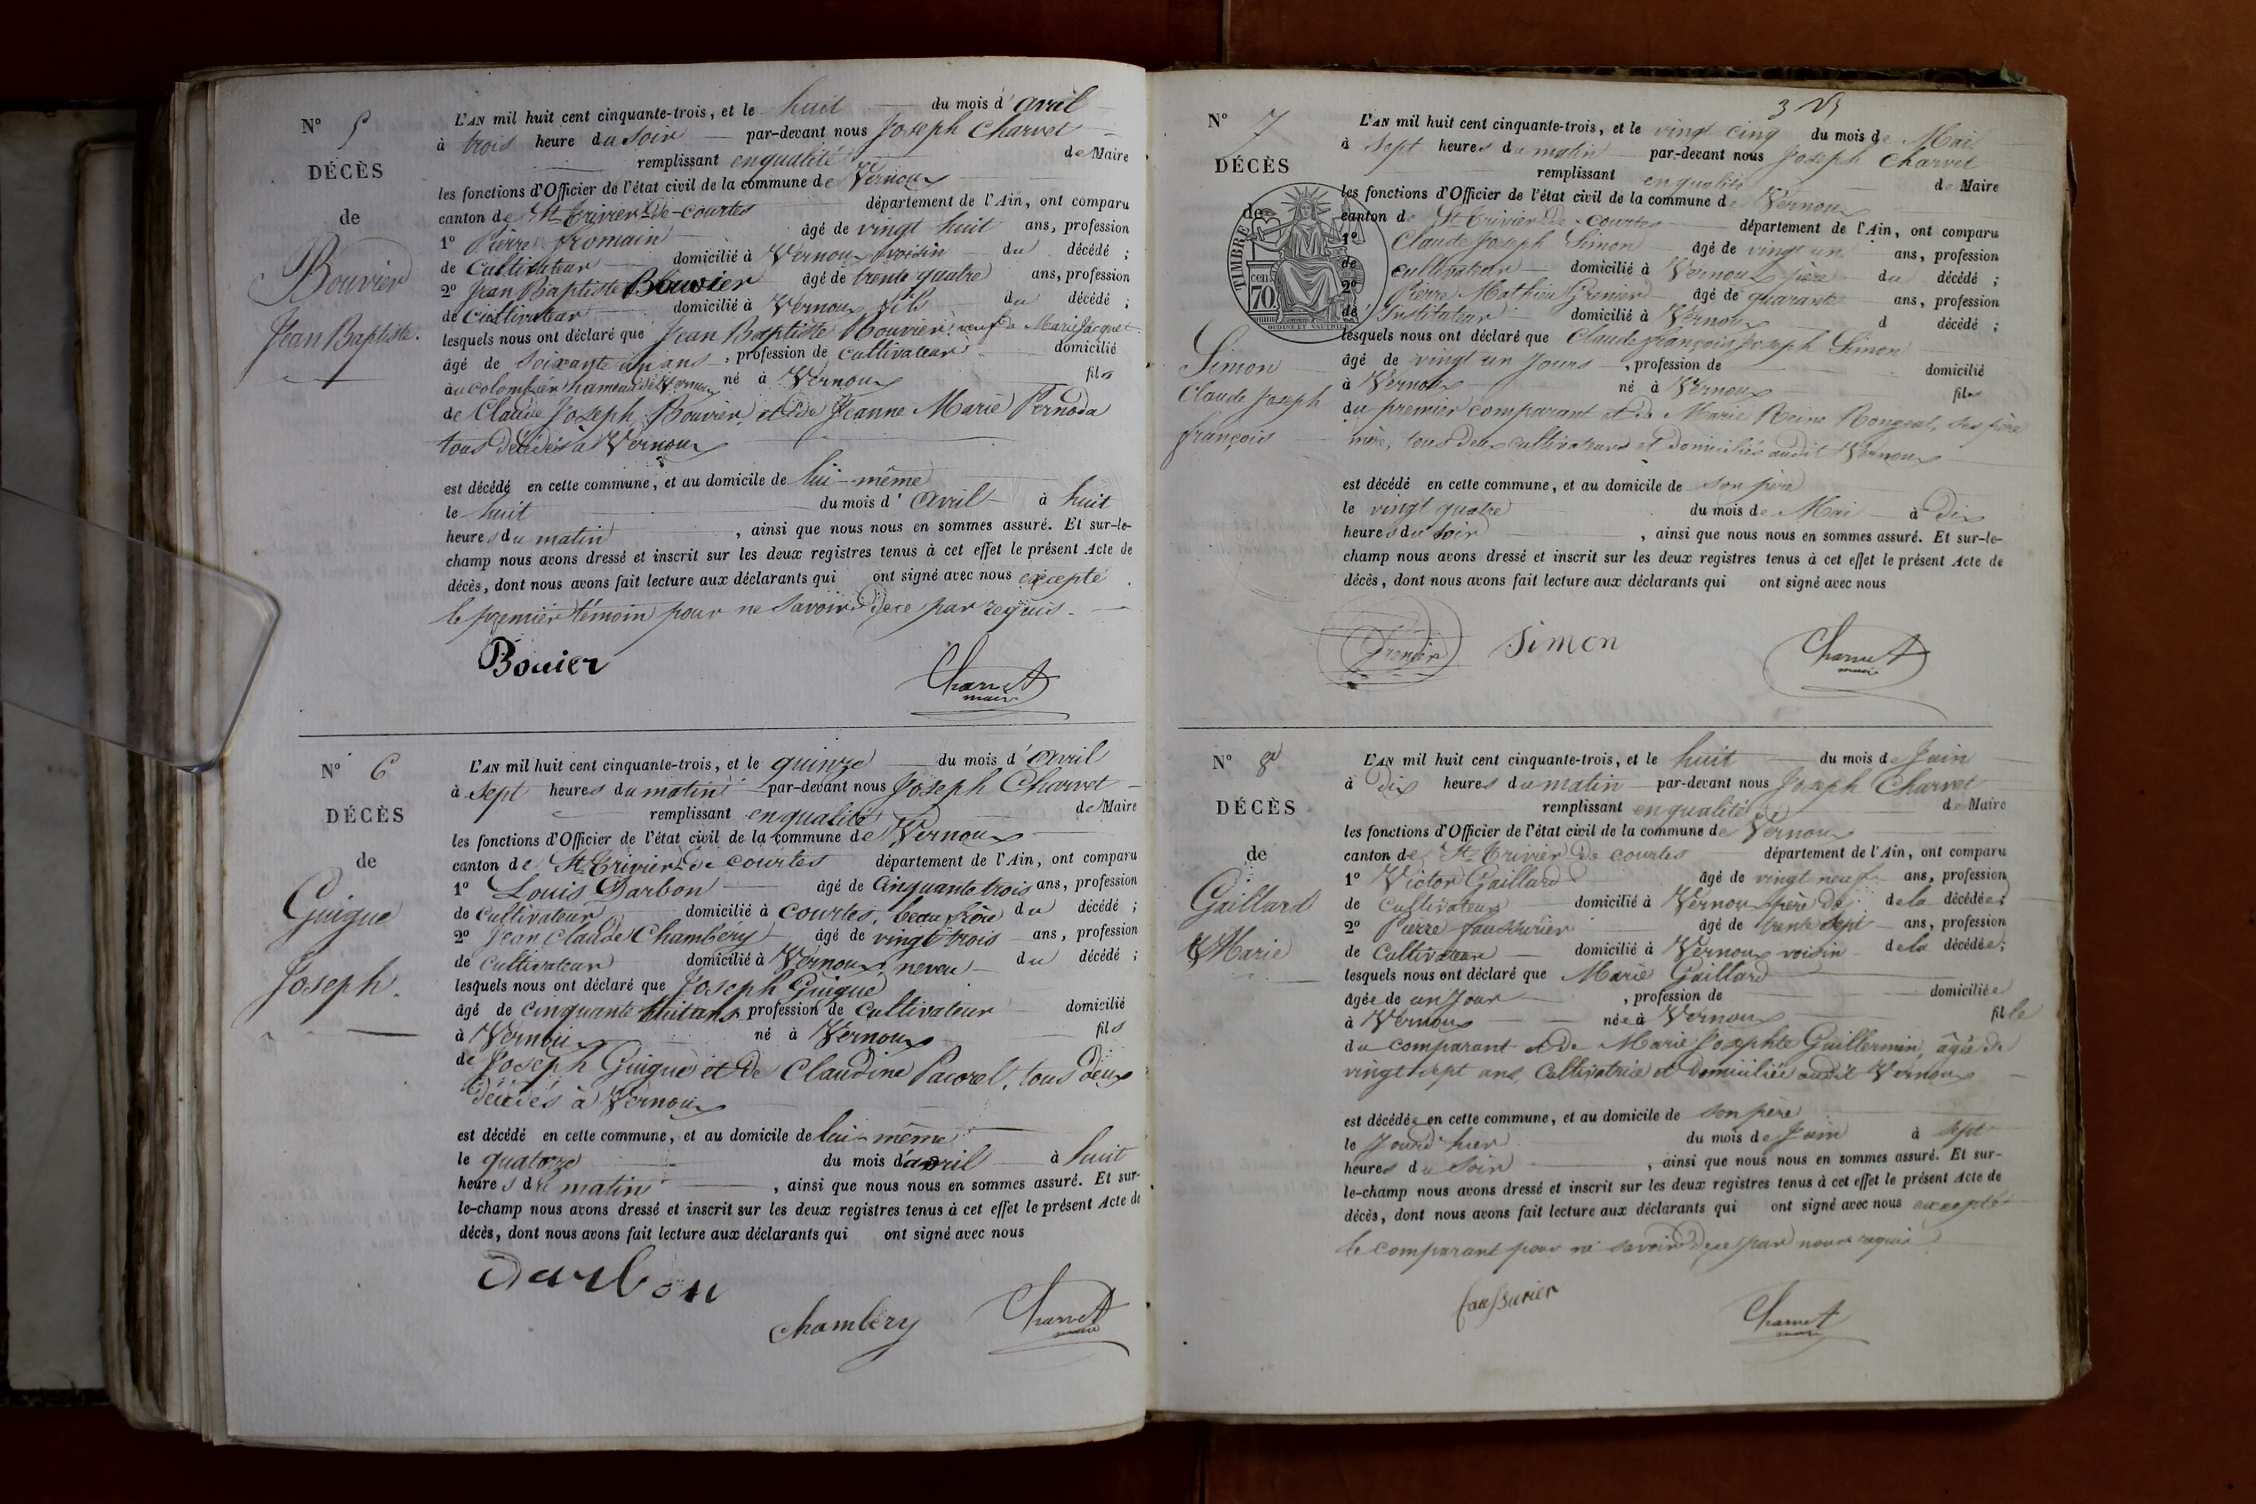 N° 5
DÉCÈS
de
Bouvier
Jean Baptiste.
L'AN mil huit cent cinquante-trois, et le huit du mois d'avril
à trois heure du soir par-devant nous Joseph Charvet
remplissant en qualité de Maire
les fonctions d'Officier de l'état civil de la commune de Vernoux
canton de St Trivier-De-courtes département de l'Ain, ont comparu
1° Pierre Romain âgé de vingt huit ans, profession
de cultivateur domicilié à Vernoux voisin du décédé ;
2° Jean Baptiste Bouvier âgé de trente quatre ans, profession
de cultivateur domicilié à Vernoux fils du décédé ;
lesquels nous ont déclaré que Jean Baptiste Bouvier veuf de Marie Jacquet
âgé de soixante un ans, profession de cultivateur domicilié
au colombier hameau de Vernoux né à Vernoux fils
de Claude Joseph Bouvier et de Jeanne Marie Pernoda
tous décédés à Vernoux
est décédé en cette commune, et au domicile de lui-même
le huit du mois d'avril à huit
heures du matin, ainsi que nous nous en sommes assuré. Et sur-le-
champ nous avons dressé et inscrit sur les deux registres tenus à cet effet le présent Acte de
décès, dont nous avons fait lecture aux déclarants qui ont signé avec nous excepté
le premier témoin pour ne savoir de ce par requis.
Bouier
Charvet
maire
N° 6
DÉCÈS
de
Guigue
Joseph.
L'AN mil huit cent cinquante-trois, et le quinze du mois d'avril
à sept heures du matin par-devant nous Joseph Charvet
remplissant en qualité de Maire
les fonctions d'Officier de l'état civil de la commune de Vernoux
canton de St Trivier De courtes département de l'Ain, ont comparu
1° Louis Darbon âgé de cinquante trois ans, profession
de cultivateur domicilié à courtes, beau frère du décédé ;
2° Jean Claude Chambéry âgé de vingt trois ans, profession
de cultivateur domicilié à Vernoux neveu du décédé ;
lesquels nous ont déclaré que Joseph Guigue
âgé de cinquante huit ans profession de cultivateur domicilié
à Vernoux né à Vernoux fils
de Joseph Guigue et de Claudine Pacoret, tous deux
décédés à Vernoux
est décédé en cette commune, et au domicile de lui-même
le quatorze du mois d'avril à huit
heures du matin, ainsi que nous nous en sommes assuré. Et sur-
le-champ nous avons dressé et inscrit sur les deux registres tenus à cet effet le présent Acte de
décès, dont nous avons fait lecture aux déclarants qui ont signé avec nous
Darbon
Chambéry
Charvet
maire
3
N° 7
DÉCÈS
de
TIMBRE
cen
70
OUDINE ET VAUTHIER
Simon
Claude Joseph
françois
L'AN mil huit cent cinquante-trois, et le vingt cinq du mois de Mai
à sept heures du matin par-devant nous Joseph Charvet
remplissant en qualité de Maire
les fonctions d'Officier de l'état civil de la commune de Vernoux
canton de St Trivier De courtes département de l'Ain, ont comparu
1° Claude Joseph Simon âgé de vingt un ans, profession
de cultivateur domicilié à Vernoux père du décédé ;
2° Pierre Mathieu Grenier âgé de quarante ans, profession
de Instituteur domicilié à Vernoux d décédé ;
lesquels nous ont déclaré que Claude françois Joseph Simon
âgé de vingt un Jours, profession de domicilié
à Vernoux né à Vernoux fils
du premier comparant et de Marie Reine Rongeat, ses père
mère, tous deux cultivateurs et domiciliés audit Vernoux
est décédé en cette commune, et au domicile de son père
le vingt quatre du mois de Mai à dix
heures du soir, ainsi que nous nous en sommes assuré. Et sur-le-
champ nous avons dressé et inscrit sur les deux registres tenus à cet effet le présent Acte de
décès, dont nous avons fait lecture aux déclarants qui ont signé avec nous
Grenier
Simon
Charvet
maire
N° 8
DÉCÈS
de
Gaillard
Marie
L'AN mil huit cent cinquante-trois, et le huit du mois de Juin
à dix heures du matin par-devant nous Joseph Charvet
remplissant en qualité de Maire
les fonctions d'Officier de l'état civil de la commune de Vernoux
canton de St Trivier De courtes département de l'Ain, ont comparu
1° Victor Gaillard âgé de vingt neuf ans, profession
de cultivateur domicilié à Vernoux père de de la décédée ;
2° Pierre faussurier âgé de trente sept ans, profession
de cultivateur domicilié à Vernoux voisin de la décédée ;
lesquels nous ont déclaré que Marie Gaillard
âgée de un Jour, profession de domiciliée
à Vernoux née à Vernoux fille
du comparant et de Marie Josephte Guillermin, âgée de
vingt sept ans, cultivatrice et domiciliée audit Vernoux
est décédée en cette commune, et au domicile de son père
le Jour d'hier du mois de Juin à sept
heures du soir, ainsi que nous nous en sommes assuré. Et sur-
le-champ nous avons dressé et inscrit sur les deux registres tenus à cet effet le présent Acte de
décès, dont nous avons fait lecture aux déclarants qui ont signé avec nous excepté
le comparant pour ne savoir de ce par nous requis
faussurier
Charvet
maire